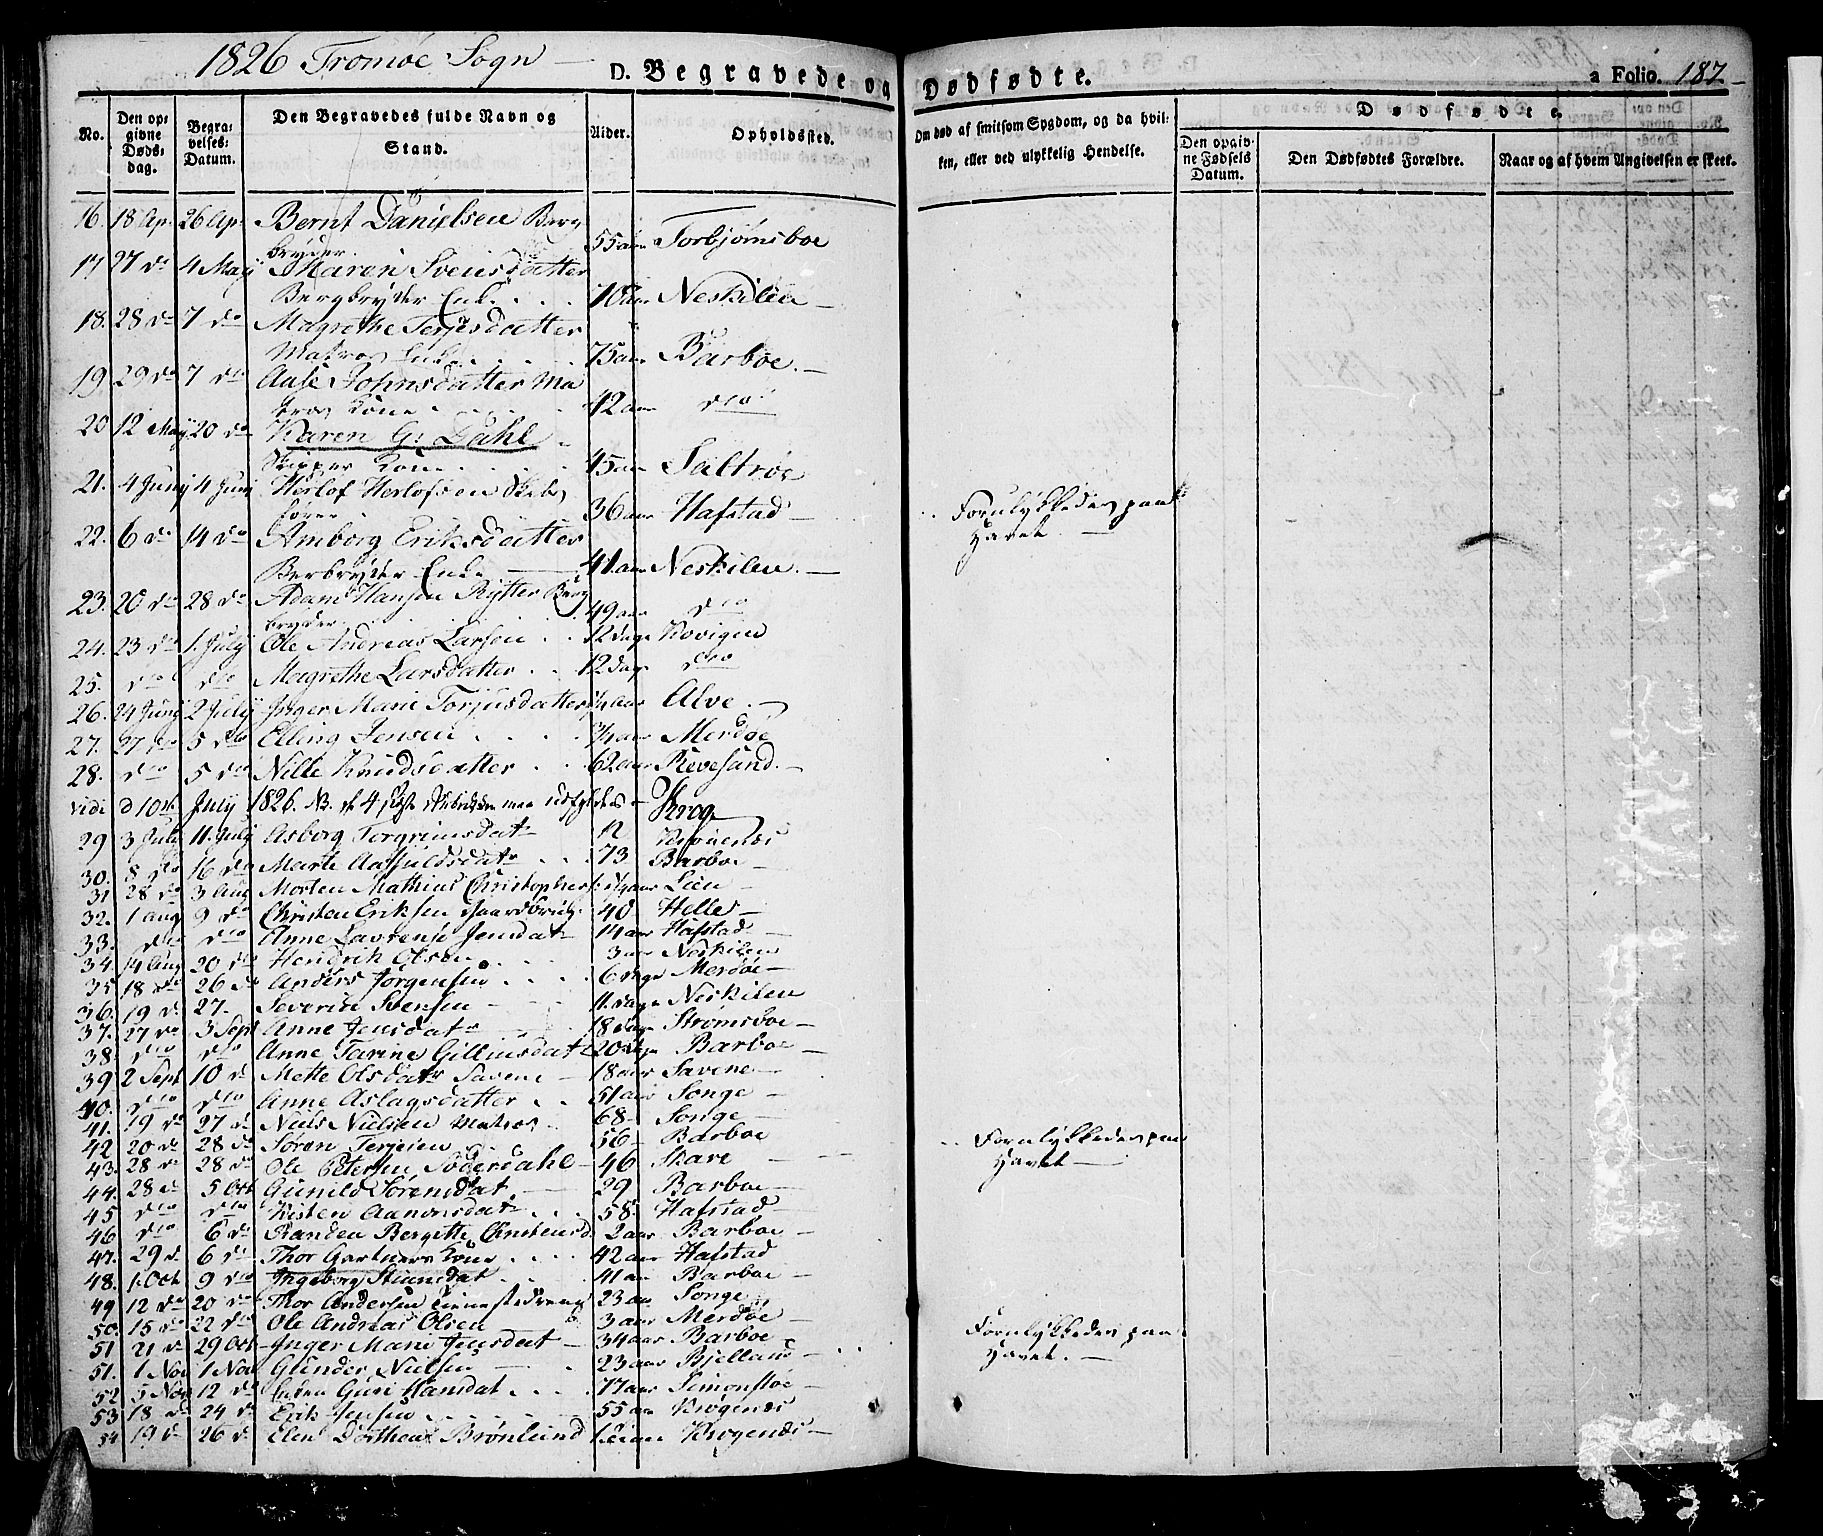 1826 Tromøe Sogn —
D. Begravede og Dødfødte. a Folio. 187
No. Den opgivne Dødsdag. Begravelses Datum. Den Begravedes fulde Navn og Stand. Alder. Opholdssted. Om død af smitsom Sygdom, og da hvilken, eller ved ulykkelig Hendelse. Dødfødte.
Den opgivne Fødsels Datum. Den Dødfødtes Forældre. Naar og af hvem Angivelsen er skeet.
16. 18 Ap. 26 Ap. Bernt Danielsen Berg
bryder 55 aar Torbjørnsboe
17 27 do 4 May Maren Svensdatter
Bergbryder Enke 70 aar Neskilen —
18. 28 do 7 do Magrethe Terjesdatter
Matros Enke 75 aar Barboe. —
19. 29 do 7 do Aase Johnsdatter Ma
tros Kone 42 aar dio
20 12 May 20 do Karen G: Dahl
Skipper Kone 45 aar Saltrøe
21. 4 Juny 4 Juni Herlof Herlofsen Skibs
fører 36 aar Hafstad — Forulykkedes paa
Havet. —
22. 6 do 14 do Amborg Eriksdatter
Berbryder Enke 41 aar Neskilen. —
23. 20 do 28 do Adam Hansen Rytter Berg
bryder. 49 aar dio
24. 23 do 1 July Ole Andreas Larsen 12 dage Kovigen
25. dio dio Magrethe Larsdatter 12 dage dio
26. 24 Juny 2 July Inger Marie Torjusdatter aar Alve. —
27. 27 do 5 do Elling Jensen 3/4 aar Merdøe
28. dio 5 dio Nille Knudsdatter 62 aar Revesand. —
Vidi d 10de July 1826. NB. de 4 sidste Rubrikker maa udfyldes — Krog
29 3 July 11 July Asborg Tergrimsdatr 12
30. 8 do 16 do Marte Aasuldsdatr 73 Barboe —
31 28 do 3 Aug Morten Mathias Christophers: 1/4 aar Lien —
32. 1 aug 9 do Christen Eriksen 40 Helle —
33. dio dio Anne Lavrense Jensdatr 14 aar Hafstad —
34. 14 Aug 20 do Hendrik Olsen 3 aar Neskilen
35 18 do 26 do Anders Jørgensen 6 dage Merdøe —
36. 19 do 27. Severin Svensen 11. dage Neskilen
37. 27 do 3 Sept Anne Jensdatr 18 dage Strømsboe —
38. dio dio Anne Tarine Gillinsdatr 20 dage Barboe —
39 2 Sept 10 do Mette Olsdatr Savene — 18 aar Savene —
40. dio dio Anne Aslagsdatter 51 aar Songe —
41. 19 do 27 do Niels Nielsen Matros 68 — Songe —
42 20 do 28 do Søren Terjesen 56 — Barboe
43. 28 do 28 do Ole Petersen Søderdahl — 46 Skare — Forulykkedes paa
Havet —
44. 28 do 5 Oct Gunild Sørensdatr — 29 Barboe —
45 dio dio Kisten Aanonsdatr 58. Hafstad —
46 dio 6 do Randen Bergette Christensd 2 aar Barboe —
47. 29 do 6 do Thor Gartners Kone 42 aar Hafstad
48. 1. Oct 9 dio Ingeborg Stiansdat 41 aar Barboe —
49 12 do 20 do Thor Andersen Tienestedreng 23 aar Songe
50. 15 do 22 do Ole Andreas Olsen 3 aar Merdøe
51 21 do 29 Oct Inger Marie Jensdatr 34 aar Barboe — Forulykkedes paa
Havet. —
51. 1 Nov 1 Nov Gunder Nielsen — 23 aar Bjelland
52 5 Nov 12 do Enken Guri Hansdat 77 aar Simonstoe —
53 18 do 24 do Erik Jensen 55 aar Krøgenæs
54 19 do 26 do Elen Dorthea Brønlund Krøgenæs —